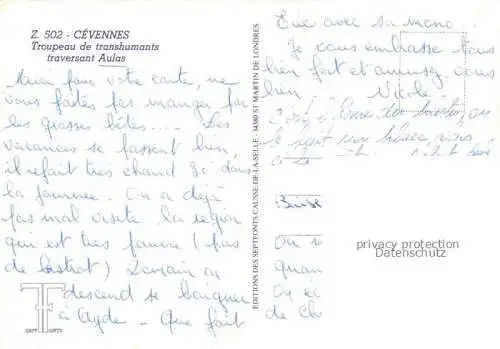 Z. 502 - CÉVENNES
Troupeau de transhumants
traversant Aulas
Merci pour votre carte, ne
vous faites pas manger par
les grosses bêtes.... Les
vacances se passent bien
il refait très chaud 30° dans
la journée. On a déjà
pas mal visité la région
qui est très pauvre (pas
de bistrot) Demain on
descend se baigner
à Agde - Que fait
SEPT FONTS
EDITIONS DES SEPTFONTS CAUSSE-DE-LA-SELLE - 34380 ST MARTIN DE LONDRES
Eve avec sa mono...
Je vous embrasse tous
bien fort et amusez vous
bien Nicole
on
le fait sur place, vous
Bai
Ou v
quan
On
de Ch
privacy protection
Datenschutz